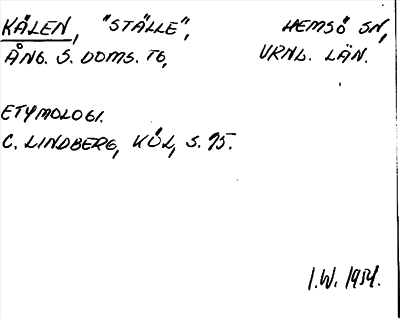 KÅLEN, "STÄLLE", HEMSÖ SN,
ÅNG. S. DOMS. TG, VRNL. LÄN.
ETYMOLOGI.
C. LINDBERG, KÖL, S. 95.
I.W. 1954.